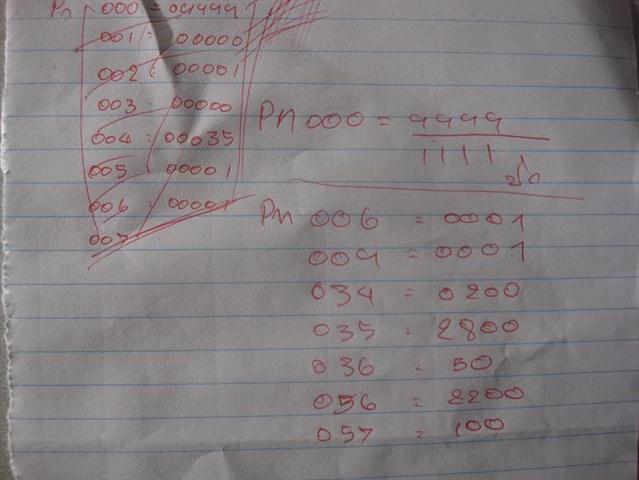 Pn 000 = 09999
001 : 00000
002 : 00001
003 : 00000
004 : 00035
005 : 00001
006 : 00001
007
Pn 000 = 9999
1111
Pn 006 = 0001
009 = 0001
034 = 0200
035 = 2800
036 = 50
056 = 2200
057 = 100